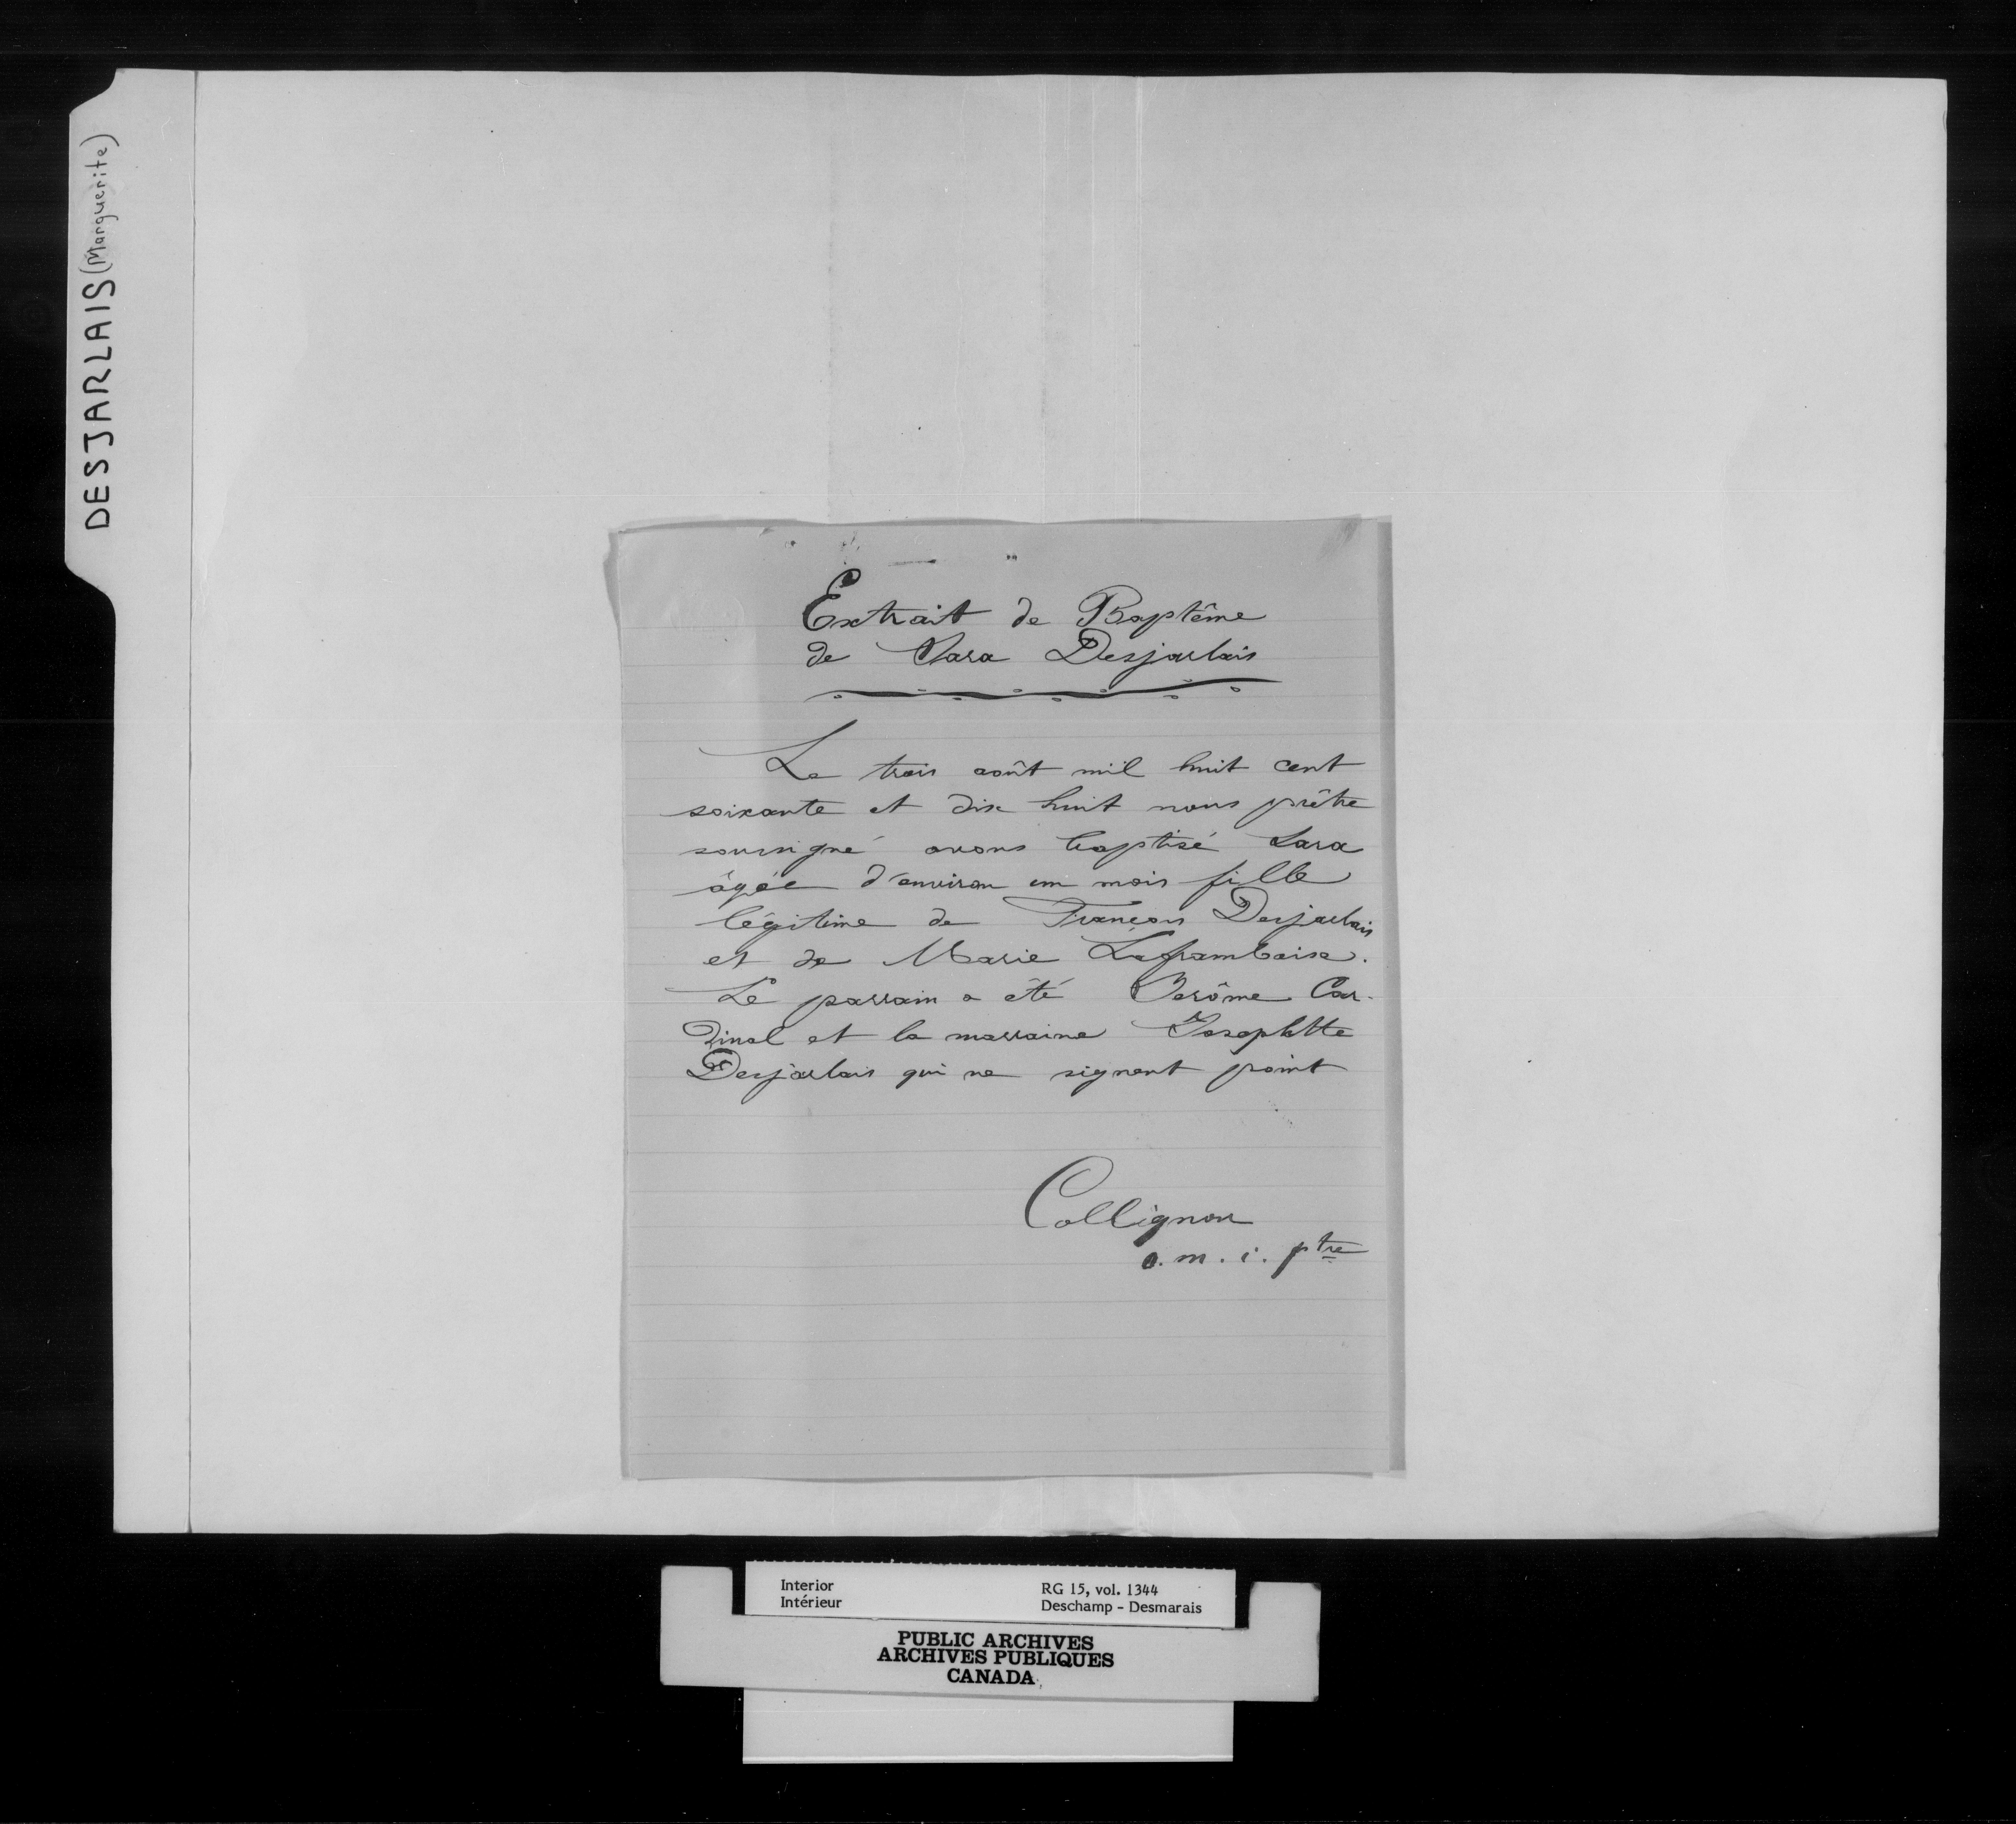 DESJARLAIS (Marguerite)
Extrait de Baptême
de Sara Desjarlais
Le trois août mil huit cent
soixante et dix huit nous prêtre
soussigné avons baptisé Sara
âgée d'environ un mois fille
légitime de François Desjarlais
et de Marie Laframboise.
Le parrain a été Jerôme Car-
dinal et la marraine Josephtte
Desjarlais qui ne signent point
Collignon
o.m.i. ptre
Interior
Intérieur
RG 15, vol. 1344
Deschamp - Desmarais
PUBLIC ARCHIVES
ARCHIVES PUBLIQUES
CANADA